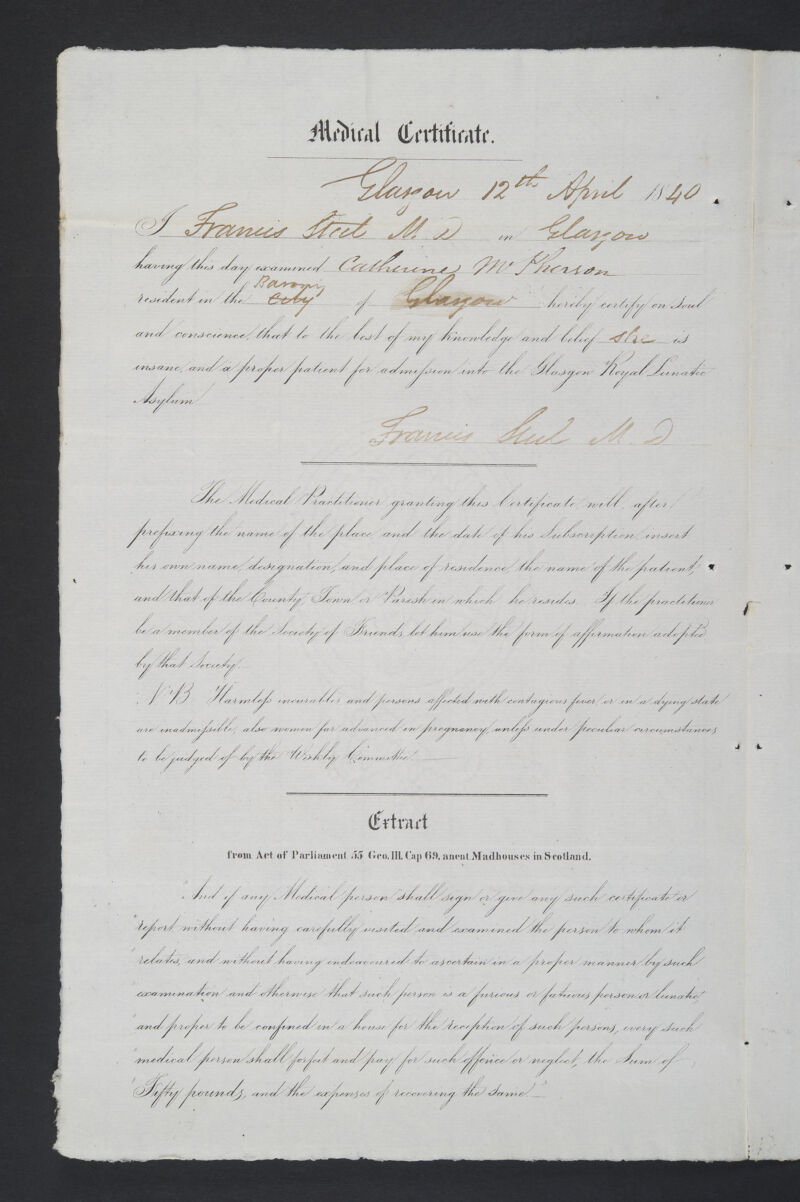 Medical Certificate.
Glasgow 12th April 1840.
I Francis Steel M. D in Glasgow
having this day examined Catherine McPherson
Barony
resident in the City of Glasgow hereby certify on soul
and conscience, that to the best of my knowledge and belief she is
insane, and a proper patient for admission into the Glasgow Royal Lunatic
Asylum
Francis Steel M. D
The Medical Practitioner granting this Certificate, will, after
prefixing the name of the place, and the date of his Subscription, insert
his own name, designation, and place of residence, the name of the patient,
and that of the County, Town or Parish in which he resides. If the practitioner
be a member of the Society of Friends, let him use the form of affirmation adopted
by that Society.
N.B. Harmless incurables and persons affected with contagious fever, or in a dying state
are inadmissible, also women far advanced in pregnancy, unless under peculiar circumstances,
to be judged of by the Weekly Committee.
Extract
from Act of Parliament 55 Geo. III. Cap 69, anent Madhouses in Scotland.
"And if any Medical person shall sign or give any such certificate or
"report without having carefully visited and examined the person to whom it
"relates, and without having endeavoured to ascertain in a proper manner by such
"examination and otherwise that such person is a furious or fatuous person or lunatic
"and proper to be confined in a house for the reception of such persons, every such
"medical person shall forfeit and pay for such offence or neglect, the Sum of
"Fifty pounds, and the expenses of recovering the same."